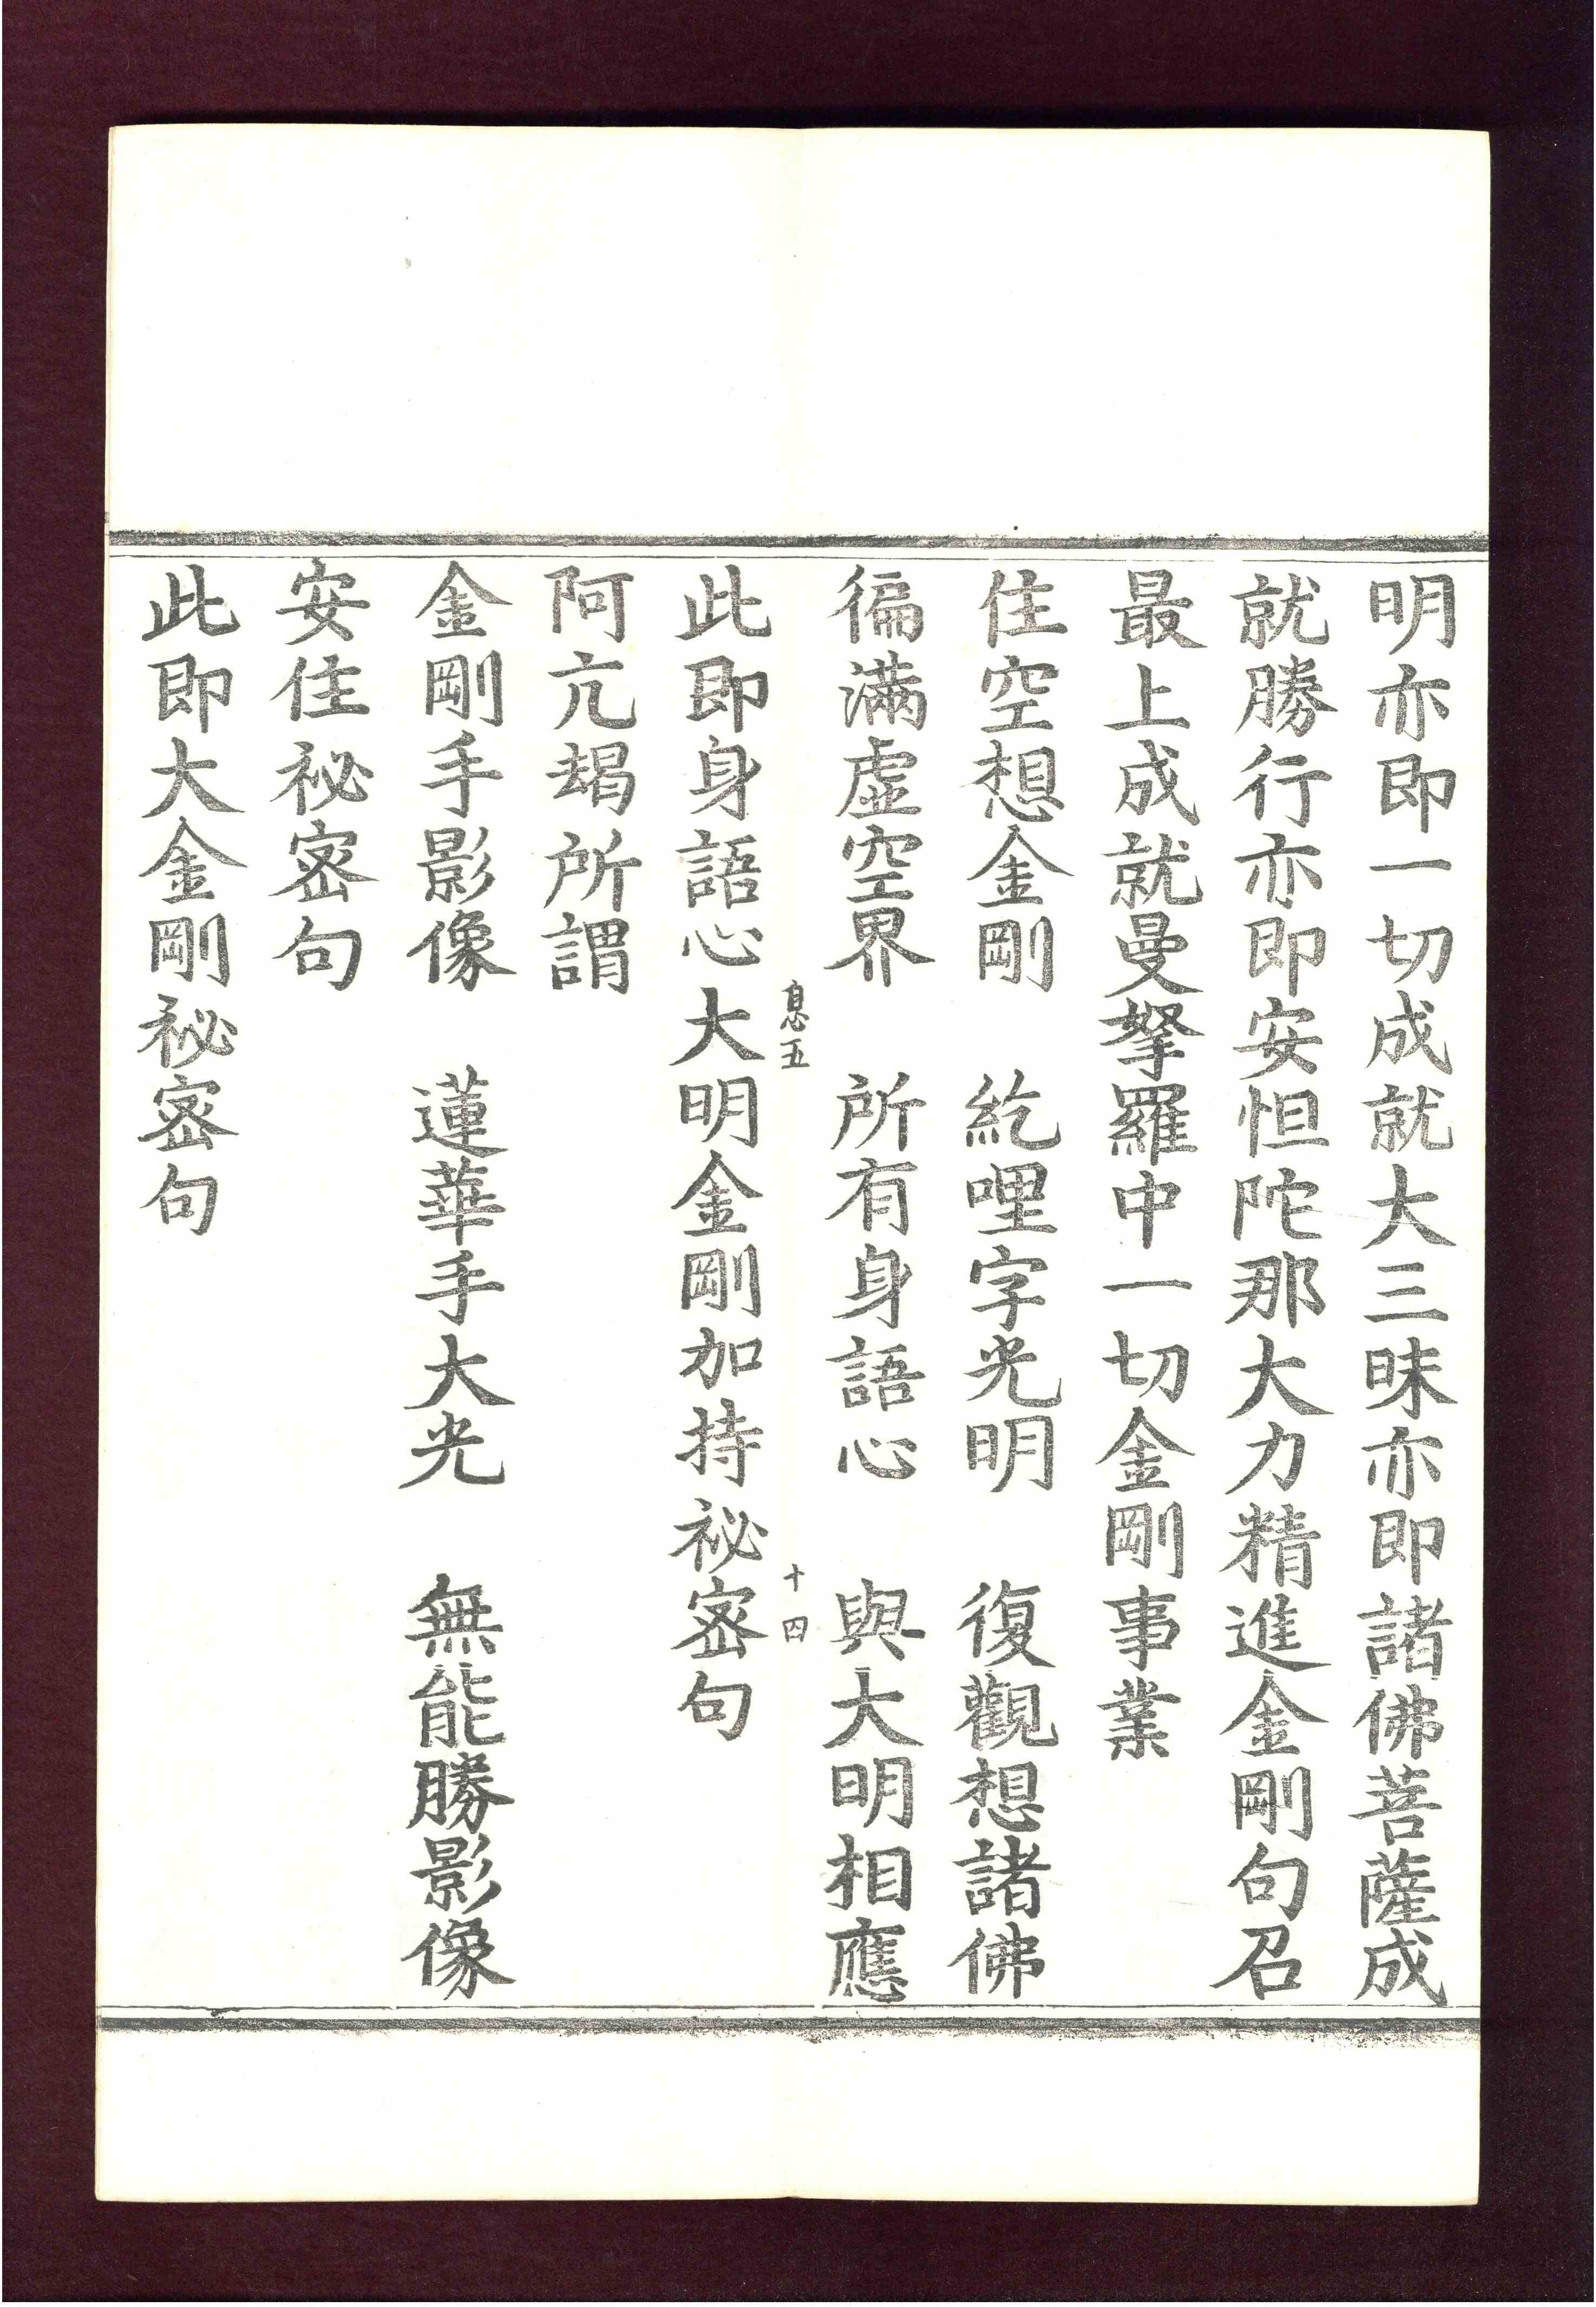 明亦即一切成就大三昧亦即諸佛菩薩成
就勝行亦即安怛陀那大力精進金剛句召
最上成就曼拏羅中一切金剛事業
住空想金剛　紇哩字光明　復觀想諸佛
徧滿虛空界　所有身語心　與大明相應
息五　十四
此即身語心大明金剛加持祕密句
阿亢朅所謂
金剛手影像　蓮華手大光　無能勝影像
安住祕密句
此即大金剛祕密句